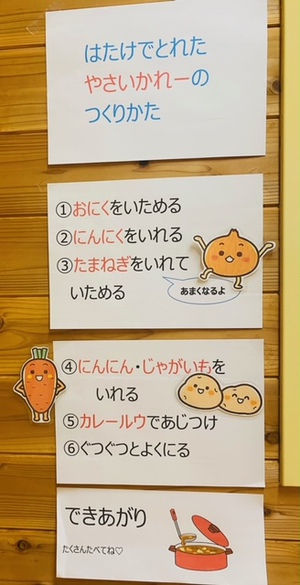 はたけでとれた
やさいかれーの
つくりかた
①おにくをいためる
②にんにくをいれる
③たまねぎをいれて
いためる
あまくなるよ
④にんにん・じゃがいもを
いれる
⑤カレールウであじつけ
⑥ぐつぐつとよくにる
できあがり
たくさんたべてね♡